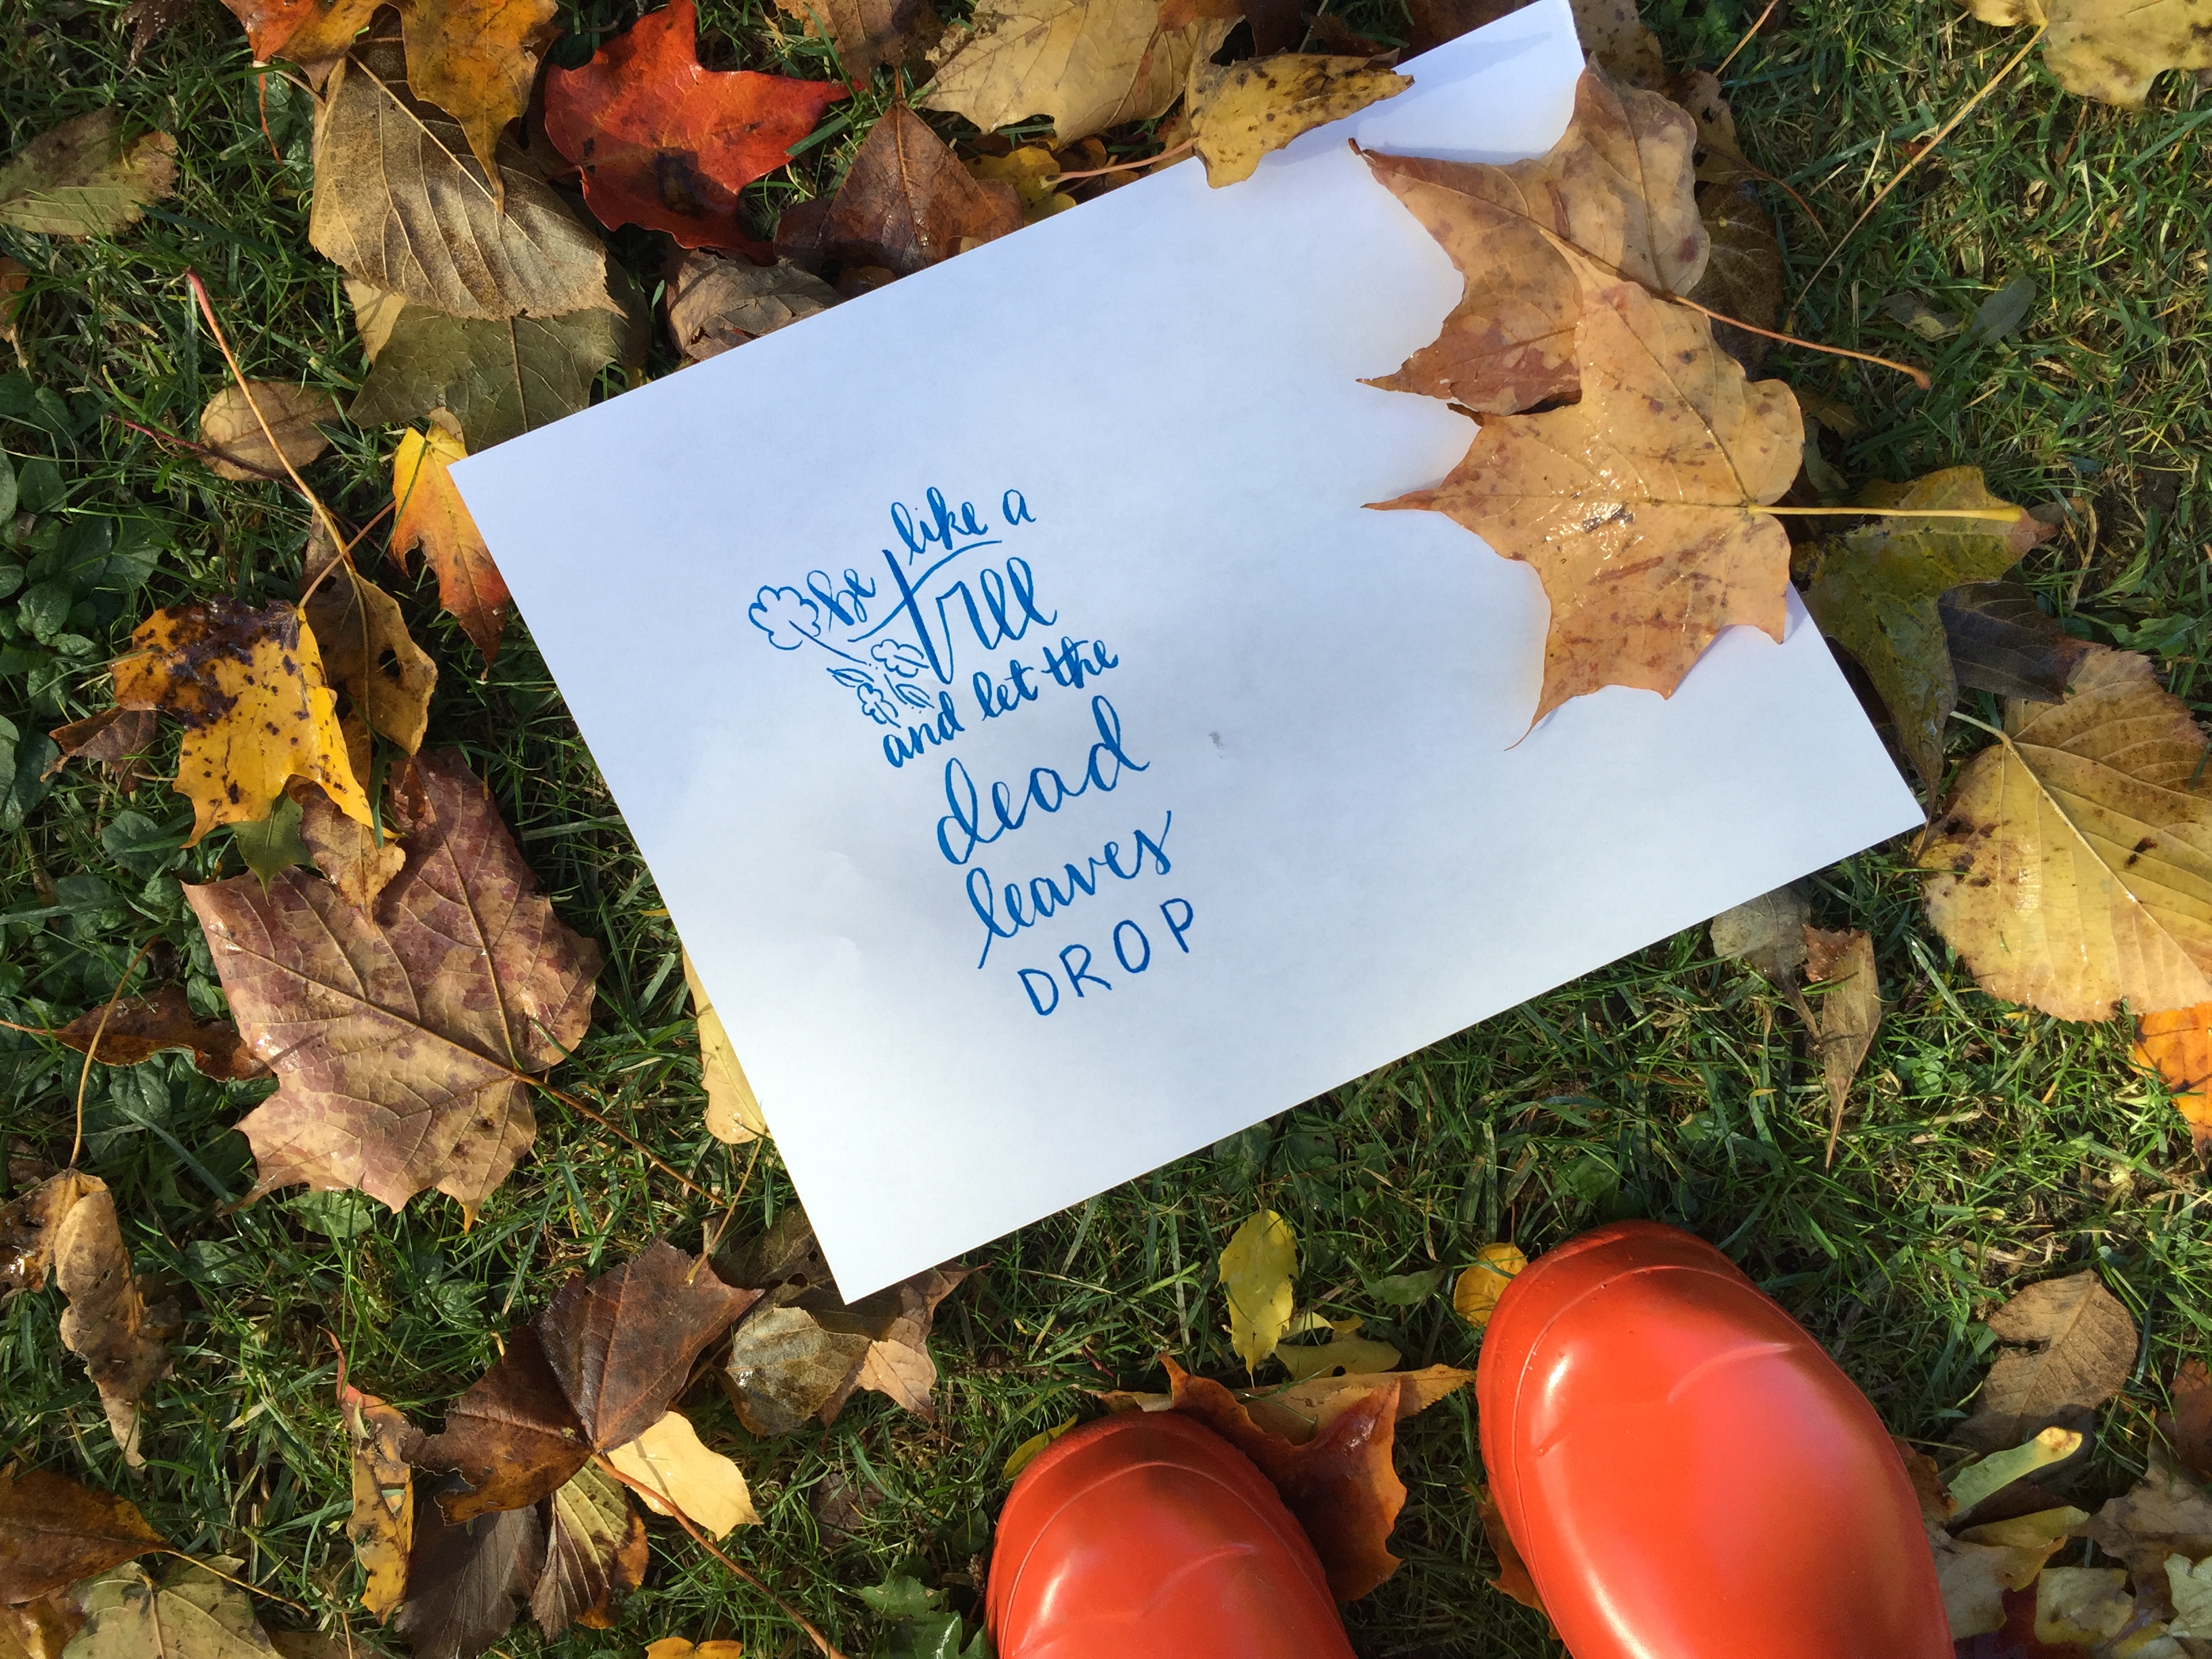 be like a
tree
and let the
dead
leaves
DROP